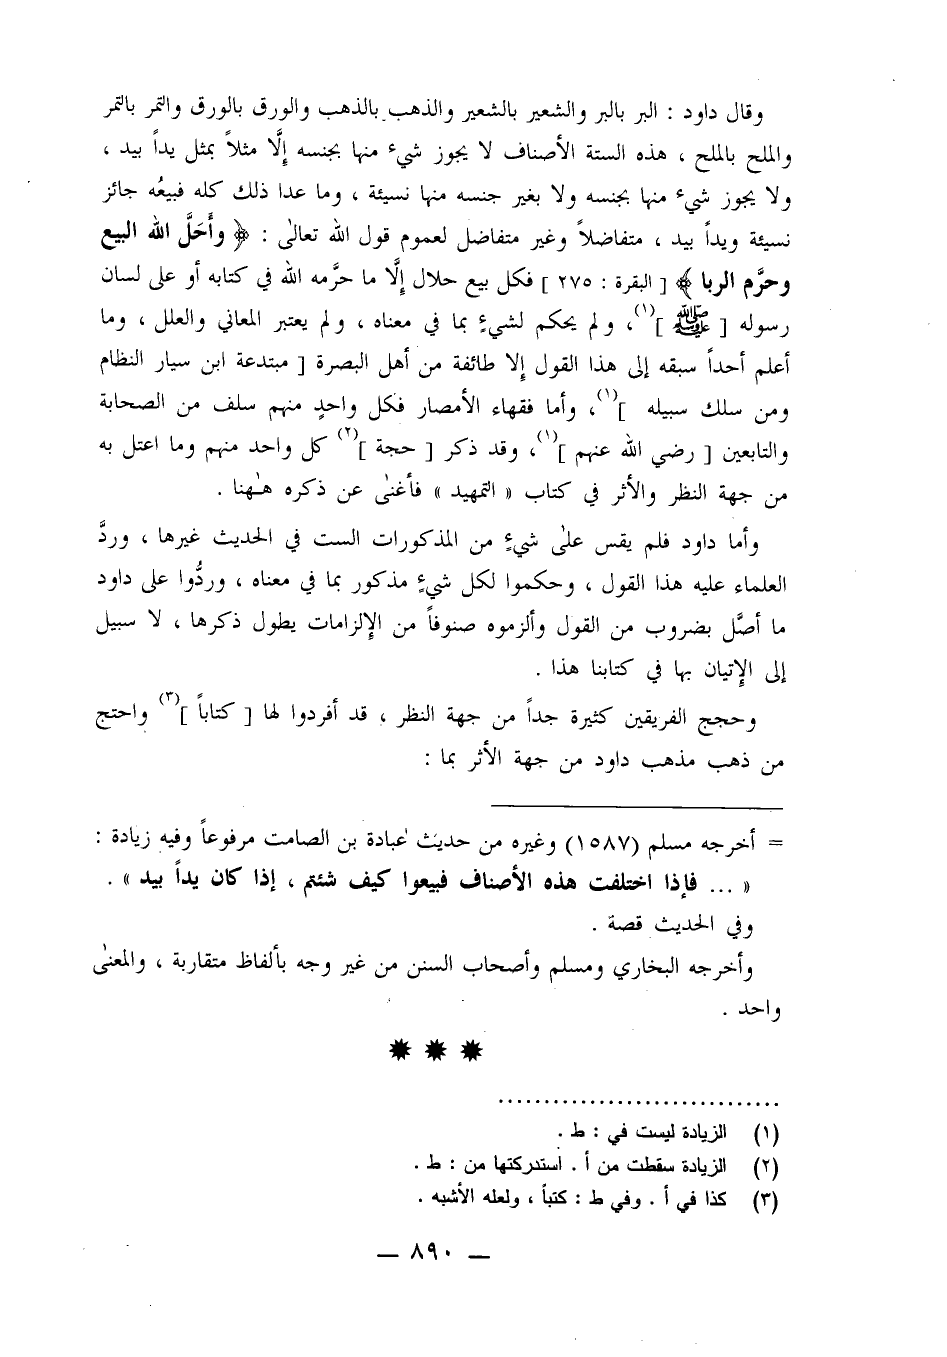 وقال داود : البر بالبر والشعير بالشعير والذهب بالذهب والورق بالورق والتمر بالتمر
والملح بالملح ، هذه الستة الأصناف لا يجوز شيء منها بجنسه إلَّا مثلاً بمثل يداً بيد ،
ولا يجوز شيء منها بجنسه ولا بغير جنسه منها نسيئة ، وما عدا ذلك كله فبيعُه جائز
نسيئة ويداً بيد ، متفاضلاً وغير متفاضل لعموم قول الله تعالى : ﴿ وأَحَلَّ الله البيع
وحرَّم الربا ﴾ [ البقرة : ٢٧٥ ] فكل بيع حلال إلَّا ما حرَّمه الله في كتابه أو على لسان
رسوله [ ﷺ ](١)، ولم يحكم لشيءٍ بما في معناه ، ولم يعتبر المعاني والعلل ، وما
أعلم أحداً سبقه إلى هذا القول إلا طائفة من أهل البصرة [ مبتدعة ابن سيار النظام
ومن سلك سبيله ](١)، وأما فقهاء الأمصار فكل واحدٍ منهم سلف من الصحابة
والتابعين [ رضي الله عنهم ](١)، وقد ذكر [ حجة ](٢) كل واحد منهم وما اعتل به
من جهة النظر والأثر في كتاب « التمهيد » فأغنى عن ذكره هٰهنا .
وأما داود فلم يقس على شيءٍ من المذكورات الست في الحديث غيرها ، وردَّ
العلماء عليه هذا القول ، وحكموا لكل شيءٍ مذكور بما في معناه ، وردُّوا على داود
ما أصَّل بضروب من القول وألزموه صنوفاً من الإلزامات يطول ذكرها ، لا سبيل
إلى الإتيان بها في كتابنا هذا .
وحجج الفريقين كثيرة جداً من جهة النظر ، قد أفردوا لها [ كتاباً ](٣) واحتج
من ذهب مذهب داود من جهة الأثر بما :
= أخرجه مسلم (١٥٨٧) وغيره من حديث عبادة بن الصامت مرفوعاً وفيه زيادة :
« ... فإذا اختلفت هذه الأصناف فبيعوا كيف شئتم ، إذا كان يداً بيد » .
وفي الحديث قصة .
وأخرجه البخاري ومسلم وأصحاب السنن من غير وجه بألفاظ متقاربة ، والمعنى
واحد .
(١) الزيادة ليست في : ط .
(٢) الزيادة سقطت من أ . استدركتها من : ط .
(٣) كذا في أ . وفي ط : كتباً ، ولعله الأشبه .
— ٨٩٠ —